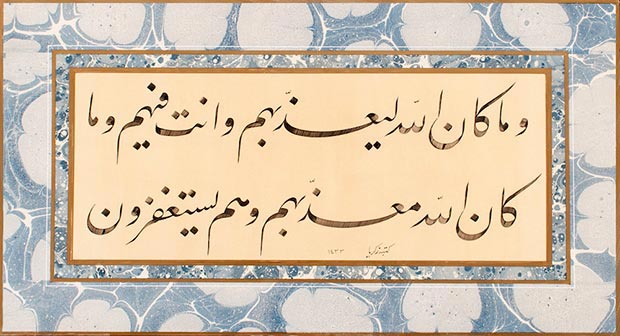 وما كان الله ليعذبهم وانت فيهم وما
كان الله معذبهم وهم يستغفرون
كتبه زكريا ١٤٣٣